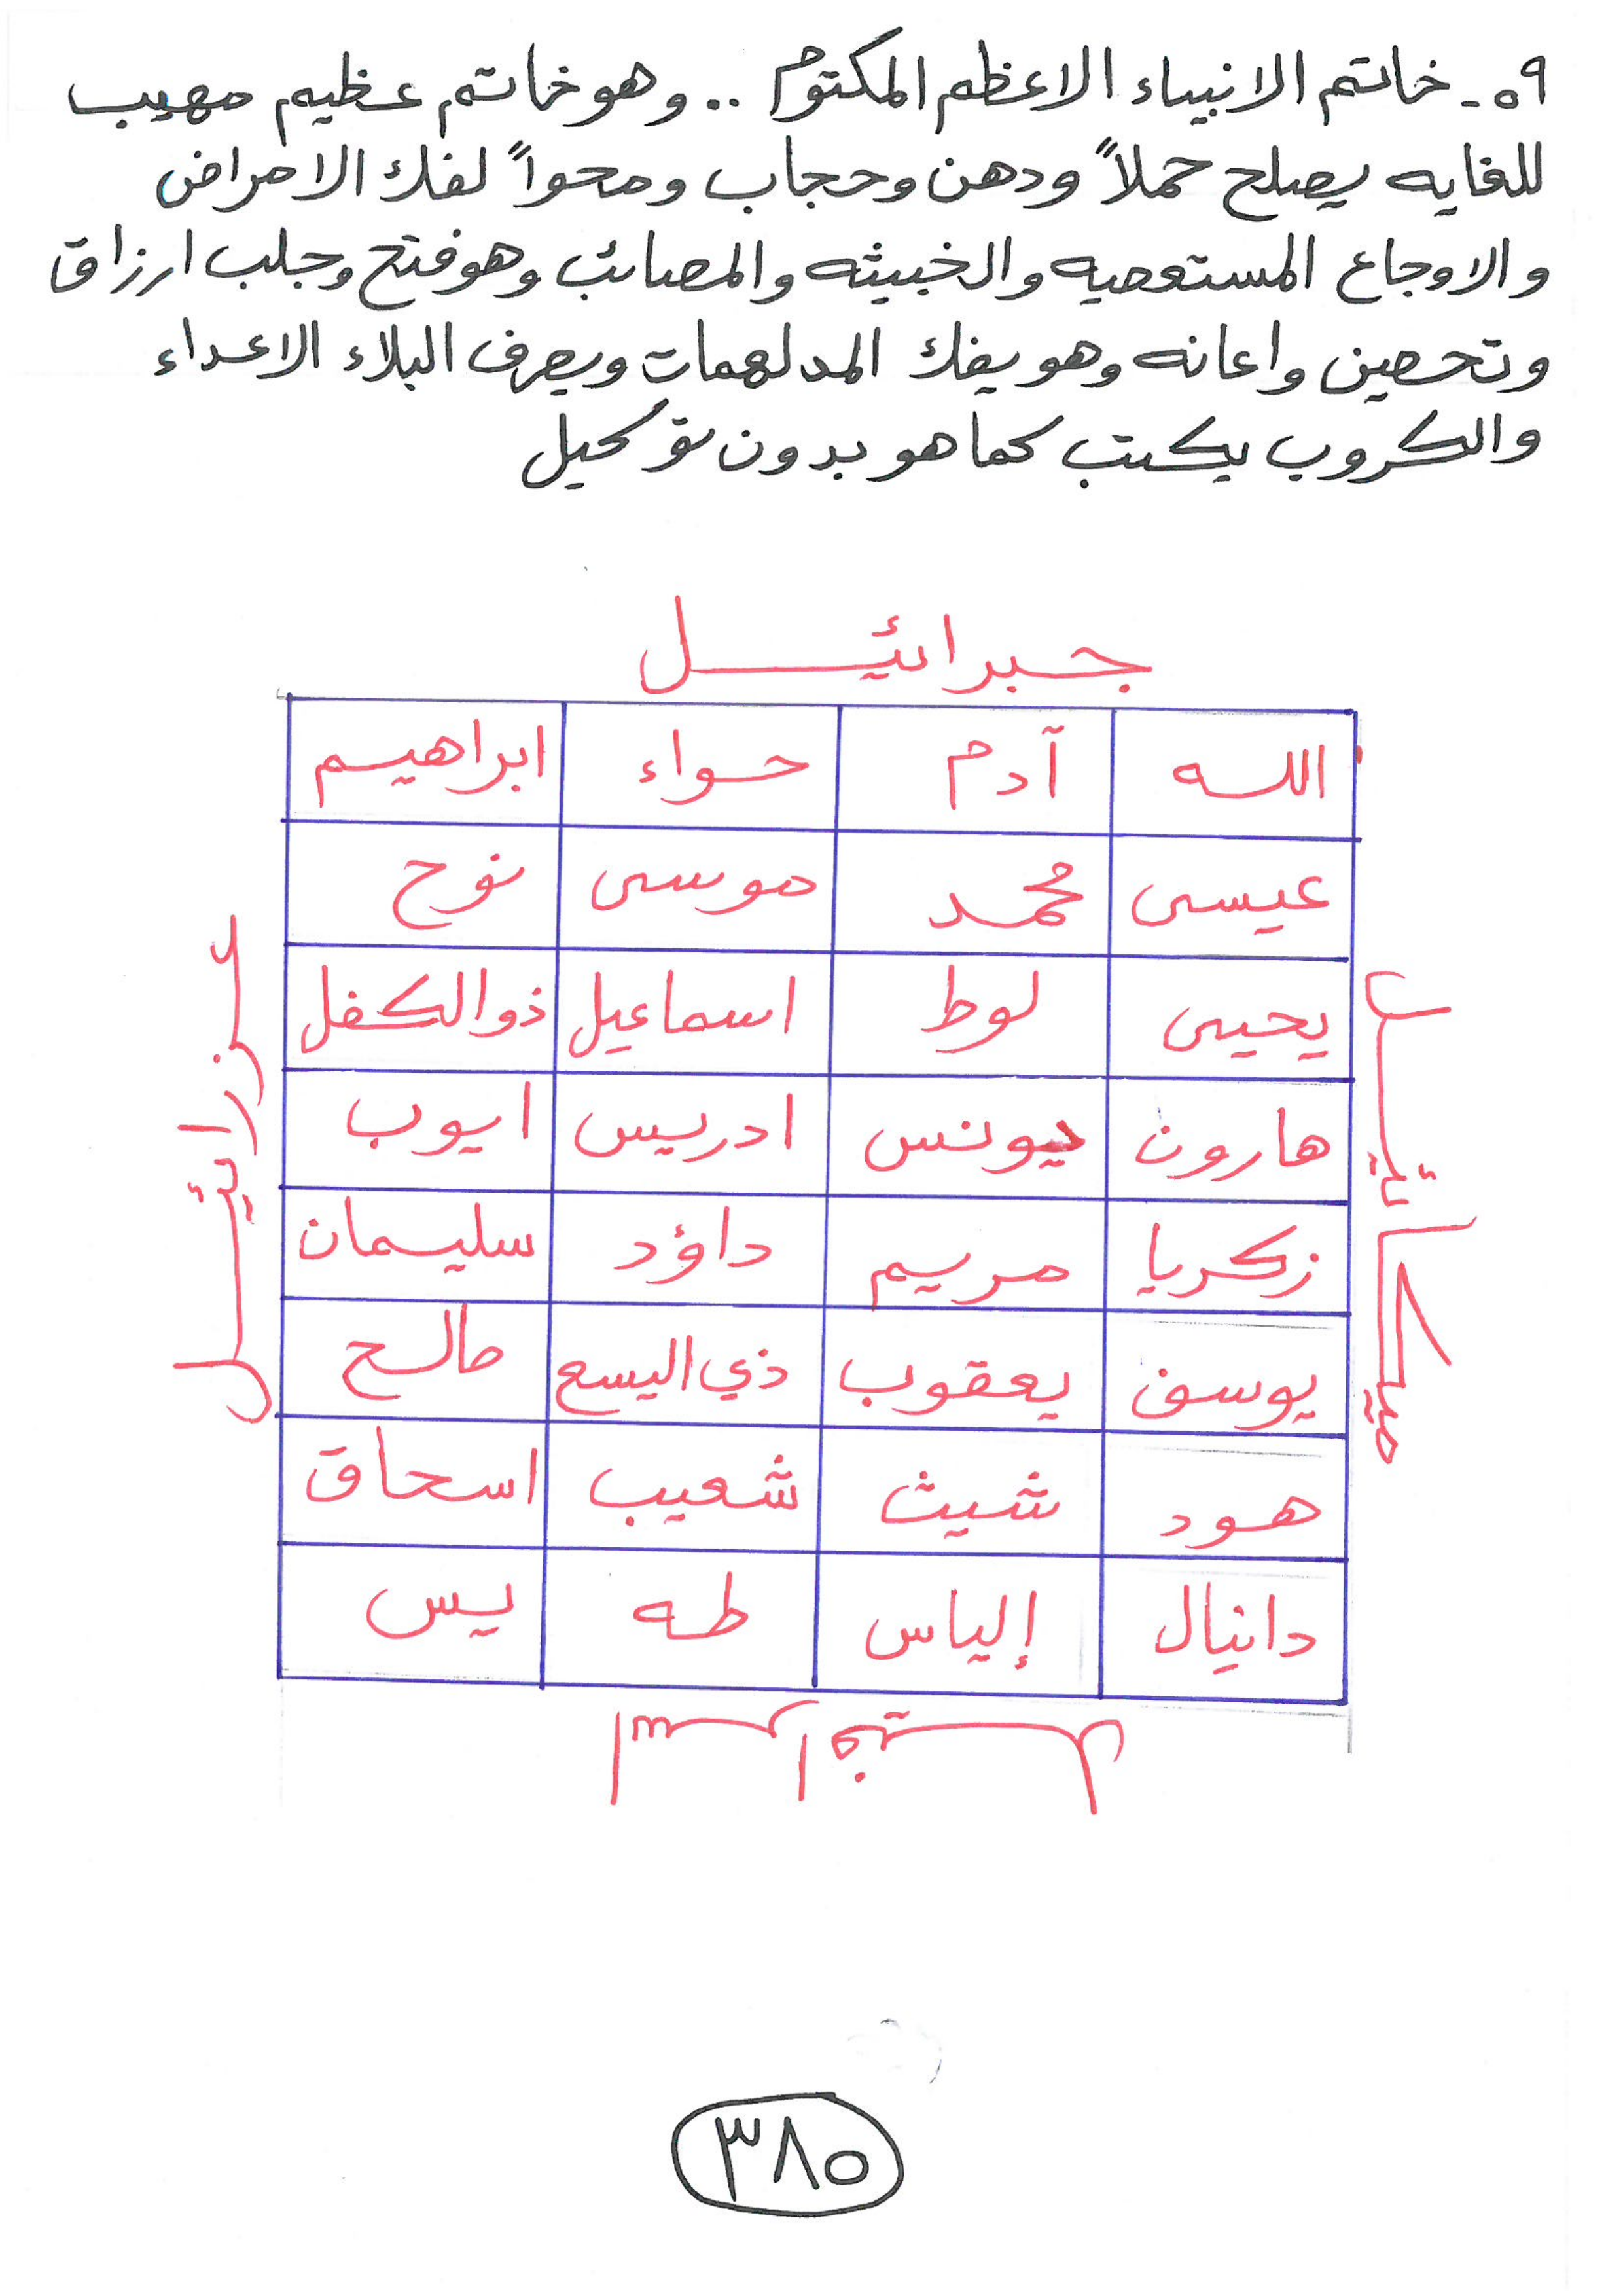 ٥٩ـ خاتم الانبياء الاعظم المكتوم .. وهو خاتم عظيم مهيب
للغايه يصلح حملاً ودهن وحجاب ومحواً لفك الامراض
والاوجاع المستعصيه والخبيثه والمصائب وهو فتح وجلب ارزاق
وتحصين واعانه وهو يفك المدلهمات ويصرف البلاء الاعداء
والكروب يكتب كما هو بدون توكيل
جبرائيل
الله آدم حواء ابراهيم
عيسى محمد موسى نوح
يحيى لوط اسماعيل ذو الكفل
هارون يونس ادريس ايوب
زكريا مريم داؤد سليمان
يوسف يعقوب ذي اليسع صالح
هود شيث شعيب اسحاق
دانيال إلياس طه يس
ميكائيل
عزرائيل
اسرافيل
٣٨٥